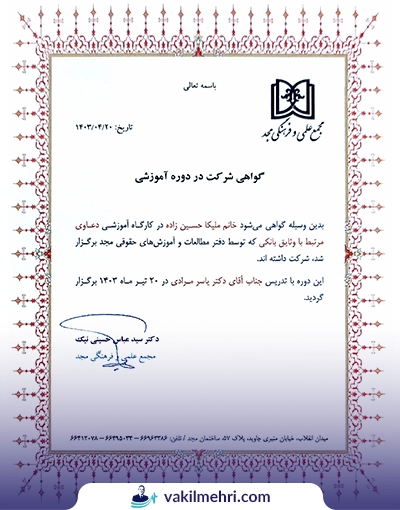 باسمه تعالی
مجمع علمی و فرهنگی مجد
تاریخ: ۱۴۰۳/۰۴/۲۰
گواهی شرکت در دوره آموزشی
بدین وسیله گواهی می‌شود خانم ملیکا حسین زاده در کارگاه آموزشی دعاوی
مرتبط با وثایق بانکی که توسط دفتر مطالعات و آموزش‌های حقوقی مجد برگزار
شد، شرکت داشته اند.
این دوره با تدریس جناب آقای دکتر یاسر مرادی در ۲۰ تیر ماه ۱۴۰۳ برگزار
گردید.
دکتر سید عباس حسینی نیک
مجمع علمی و فرهنگی مجد
میدان انقلاب، خیابان منیری جاوید، پلاک ۵۷، ساختمان مجد / تلفن: ۶۶۹۶۳۳۸۶ – ۶۶۴۹۵۰۳۴ – ۶۶۴۱۲۰۷۸
vakilmehri.com